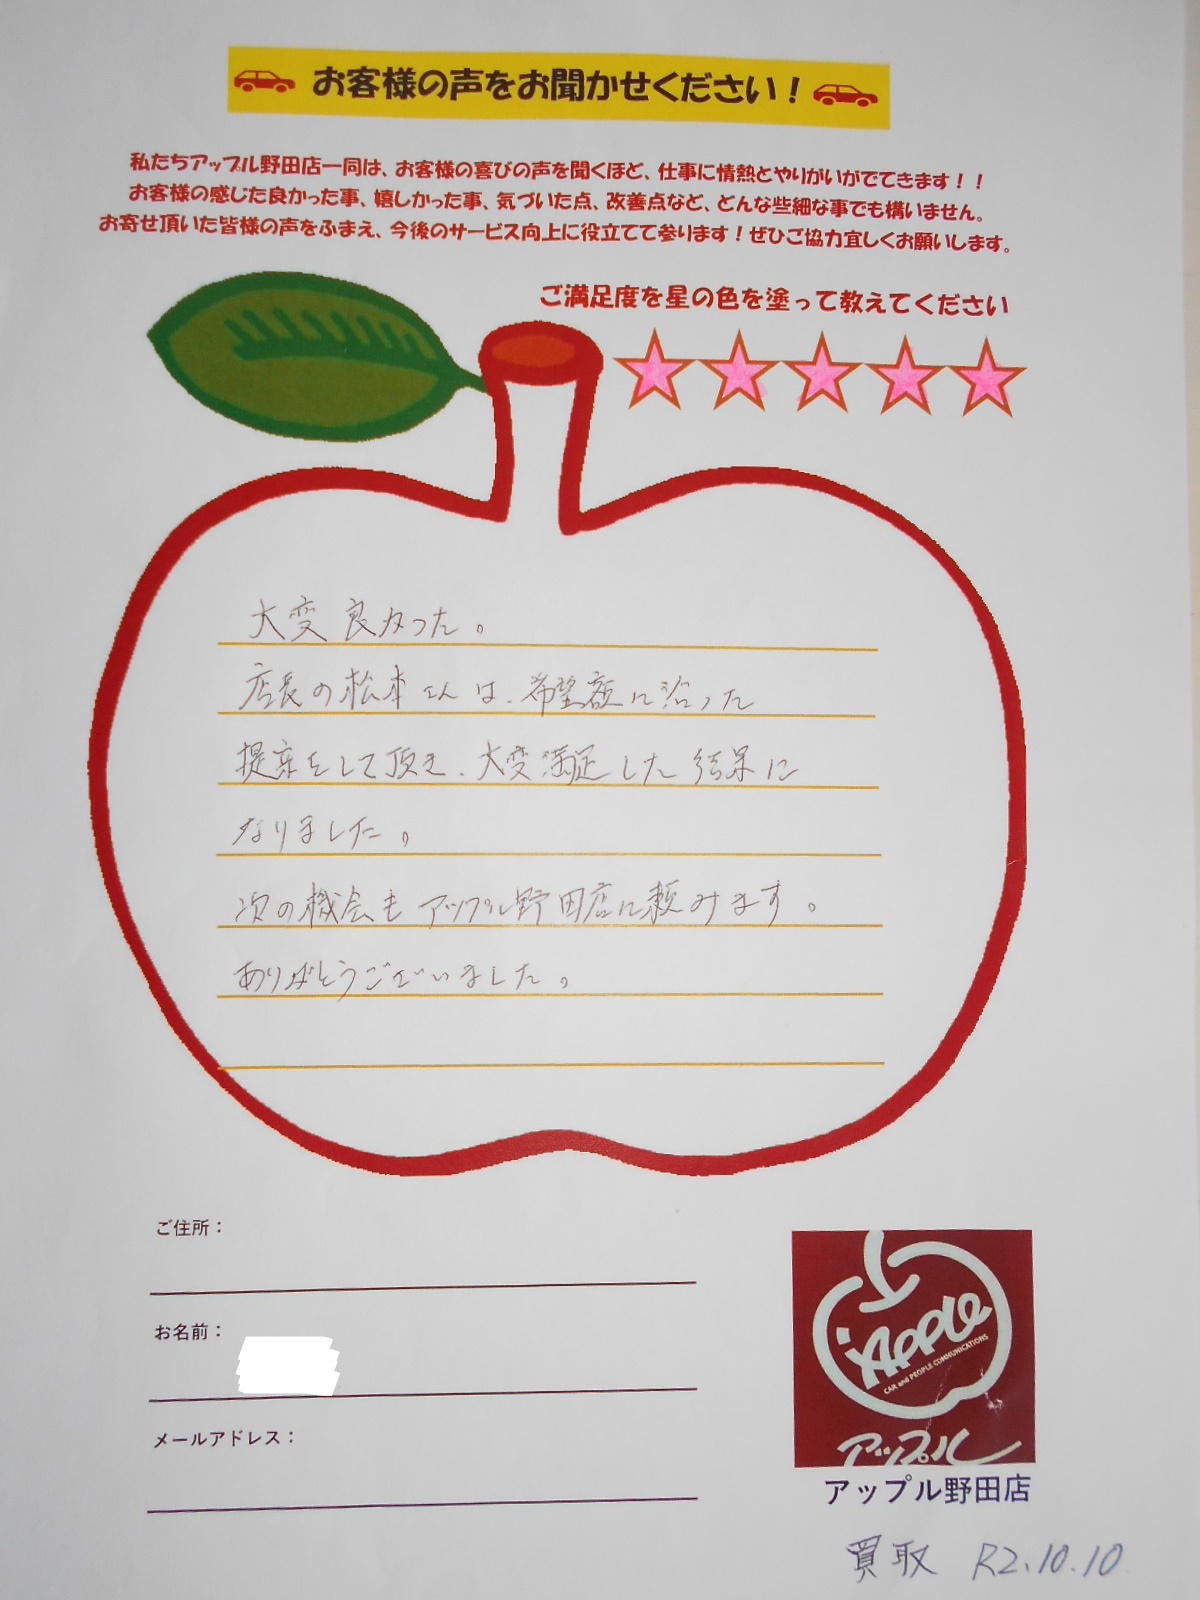 お客様の声をお聞かせください！
私たちアップル野田店一同は、お客様の喜びの声を聞くほど、仕事に情熱とやりがいがでてきます！！
お客様の感じた良かった事、嬉しかった事、気づいた点、改善点など、どんな些細な事でも構いません。
お寄せ頂いた皆様の声をふまえ、今後のサービス向上に役立てて参ります！ぜひご協力宜しくお願いします。
ご満足度を星の色を塗って教えてください
大変良かった。
店長の松本さんは、希望額に沿った
提案をして頂き、大変満足した結果に
なりました。
次の機会もアップル野田店に頼みます。
ありがとうございました。
ご住所：
お名前：
メールアドレス：
Apple
CAR and PEOPLE COMMUNICATIONS
アップル
アップル野田店
買取 R2.10.10